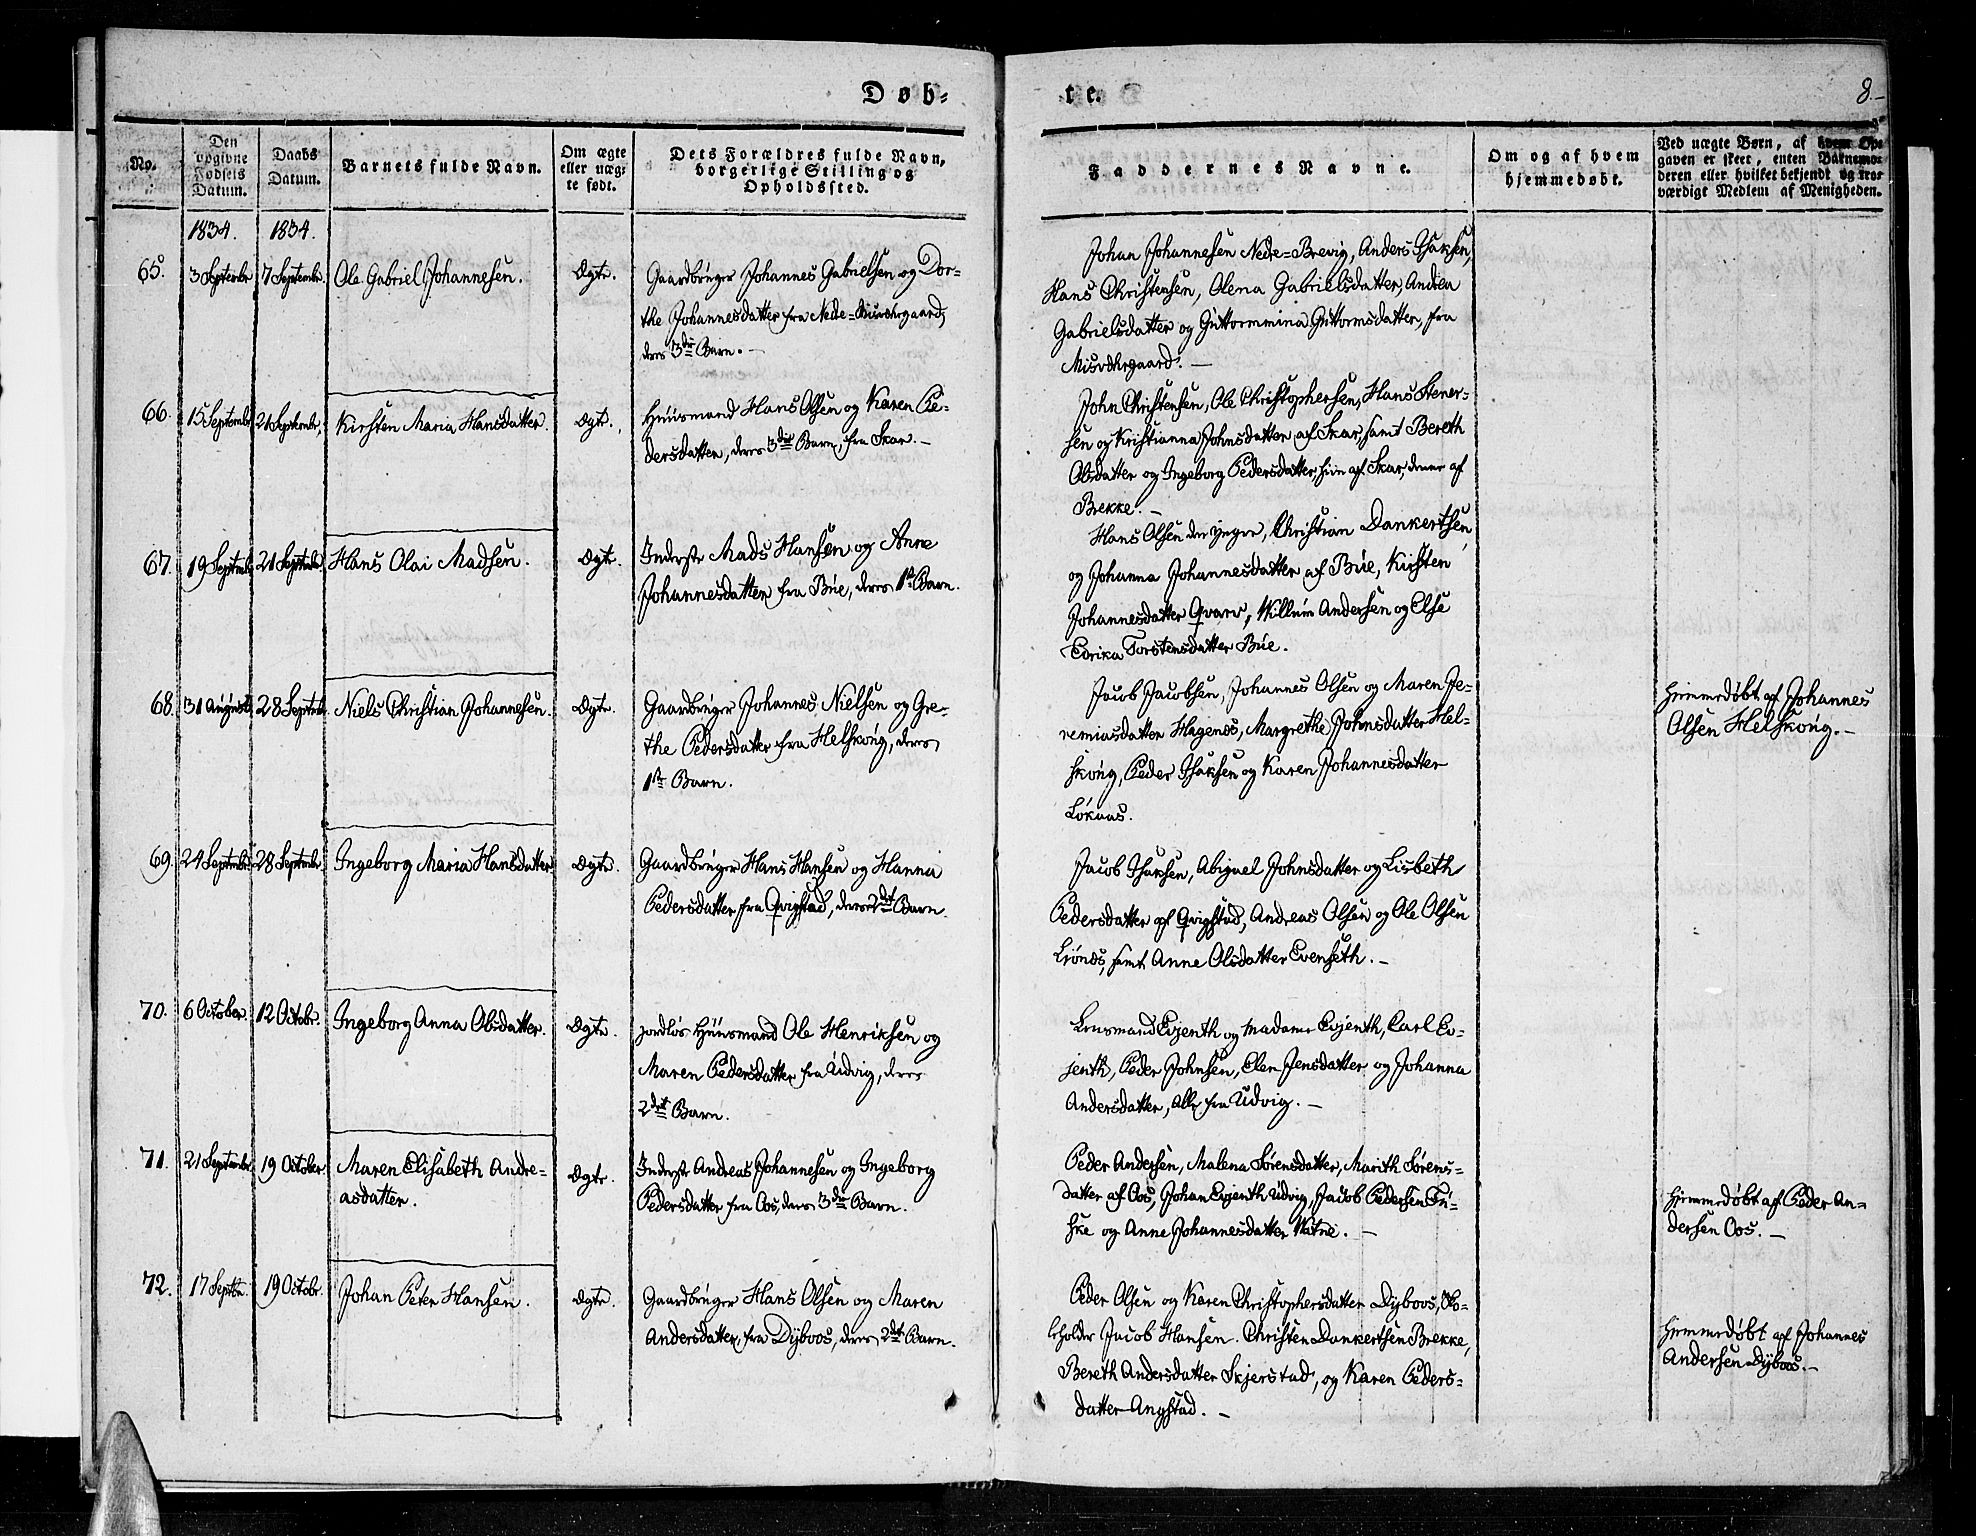 Døb=
te.
8.-
No.
Den opgivne Fødsels Datum.
Daabs Datum.
Barnets fulde Navn.
Om ægte eller uæg=te født.
Dets Forældres fulde Navn, borgerlige Stilling og Opholdssted.
Faddernes Navne.
Om og af hvem hjemmedøbt.
Ved uægte Børn, af hvem Op=gaven er skeet, enten Barnemo=deren eller hvilket bekjendt og tro=værdigt Medlem af Menigheden.
1834. 1834.
65. 3 Septembr 7 Septembr. Ole Gabriel Johannesen. Ægte.
Gaardbruger Johannes Gabrielsen og Dor=
the Johannesdatter fra Nede=Misvehrgaard,
deres 3die Barn. -
Johan Johannesen Nede=Brevig, Anders Isaksen,
Hans Christensen, Olena Gabrielsdatter, Andrea
Gabrielsdatter og Guttormmina Guttormsdatter, fra
Misvehrgaard. -
66. 15 Septembr 21 Septembr, Kirsten Maria Hansdatter. Ægte.
Huusmand Hans Olsen og Karen Pe=
dersdatter, deres 3die Barn, fra Skar. -
John Christensen, Ole Christophersen, Hans Stener=
sen og Kristianna Johnsdatter af Skar, samt Bereth
Olsdatter og Ingeborg Pedersdatter, hiin af Skar, denne af
Brekke. -
67. 19 Septembr 21 Septembr Hans Olai Madsen. Ægte.
Inderste Mads Hansen og Anne
Johannesdatter fra Bue, deres 1ste Barn.
Hans Olsen den yngre, Christian Dankertsen
og Johanna Johannesdatter af Bue, Kirsten
Johannesdatter Qvarv, Willum Andersen og Else
Edrika Torstensdatter Bue.
68. 31 August 28 Septembr. Niels Christian Johannesen. Ægte.
Gaardbruger Johannes Nielsen og Gre=
the Pedersdatter fra Helskong, deres
1ste Barn.
Jacob Jacobsen, Johannes Olsen og Maren Je=
remiasdatter Hagenes, Margrethe Johnsdatter Hel=
skong, Peder Isaksen og Karen Johannesdatter
Løkaas.
Hjemmedøbt af Johannes
Olsen Helskong. -
69. 24 Septembr 28 Septembr. Ingeborg Maria Hansdatter Ægte.
Gaardbruger Hans Hansen og Hanna
Pedersdatter fra Qvigstad, deres 2det Barn.
Jacob Isaksen, Abigael Johnsdatter og Lisbeth
Pedersdatter af Qvigstad, Andreas Olsen og Ole Olsen
Liønes, samt Anne Olsdatter Evenseth. -
70. 6 October. 12 Octobr. Ingeborg Anna Olsdatter. Ægte.
jordløs Huusmand Ole Henriksen og
Maren Pedersdatter fra Udvig, deres
2det Barn.
Lensmand Evjenth og Madame Evjenth, Carl Ev=
jenth, Peder Johnsen, Elen Jensdatter og Johanna
Andersdatter, Alle fra Udvig. -
71. 21 Septembr. 19 October. Maren Elisabeth Andre=
asdatter. Ægte.
Inderste Andreas Johannesen og Ingeborg
Pedersdatter fra Oos, deres 3die Barn.
Peder Andersen, Malena Sørensdatter, Marith Sørens=
datter af Oos, Johan Evjenth Udvig, Jacob Pedersen Fu=
ske og Anne Johannesdatter Watne. -
Hjemmedøbt af Peder An=
dersen Oos. -
72. 17 Septbr. 19 Octobr. Johan Peter Hansen. Ægte.
Gaardbruger Hans Olsen og Maren
Andersdatter, fra Dyboos, deres 2det Barn.
Peder Olsen og Karen Christophersdatter Dyboos, Sko=
leholder Jacob Hansen. Christen Dankertsen Brekke,
Bereth Andersdatter Skjerstad, og Karen Peders=
datter Angstad. -
Hjemmedøbt af Johannes
Andersen Dyboos. -